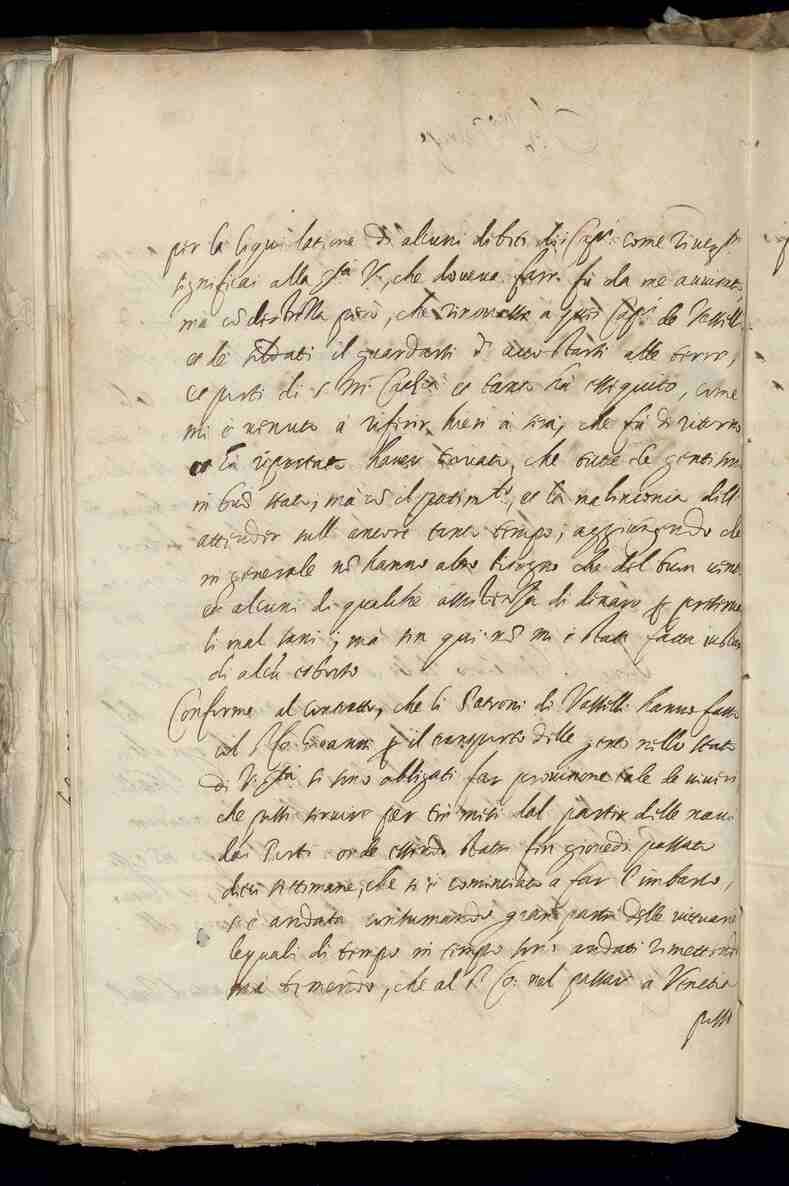 per la liquidatione di alcuni debiti di Cap.ni come rivere.te
significai alla S.tà V., che doveva farsi fù da me avvisato
mà cō destrezza però, che rinovasse à questi Cap.i de Vasselli
et de soldati il guardarsi di accostarsi alle terre,
et porti di S. M. Cat.ca et tanto hà esseguito, come
mi è venuto à riferir hieri à sera, che fù di ritorno
et hà riportato haver trovato, che tutte le genti sono
in buō stato, mà cō il patim.to, et la malinconia dell'
attender sull'ancore tanto tempo, aggiungendo che
in generale nō hanno altro bisogno che del buon vino
et alcuni di qualche assistenza di denaro p
li mal sani; mà sin qui nō mi è stata fatta instanza
di alcū esborso
Conforme al contratto, che li Patroni di Vasselli hanno fatto
col S.r Co. Giovanni p il transporto delle genti nello stato
di V. S.tà si sono obligati far provisione tale de viveri
che possi servire per tre mesi dal partir delle navi
dai Porti onde essendo state fin giovedì passato
dieci settimane, che si è cominciato a far l'imbarco,
s'è andata consumando gran parte delle vittuarie
le quali di tempo in tempo sono andati rimettendo
mà temendo, che al S.r Co: nel passar a Venetia
possi